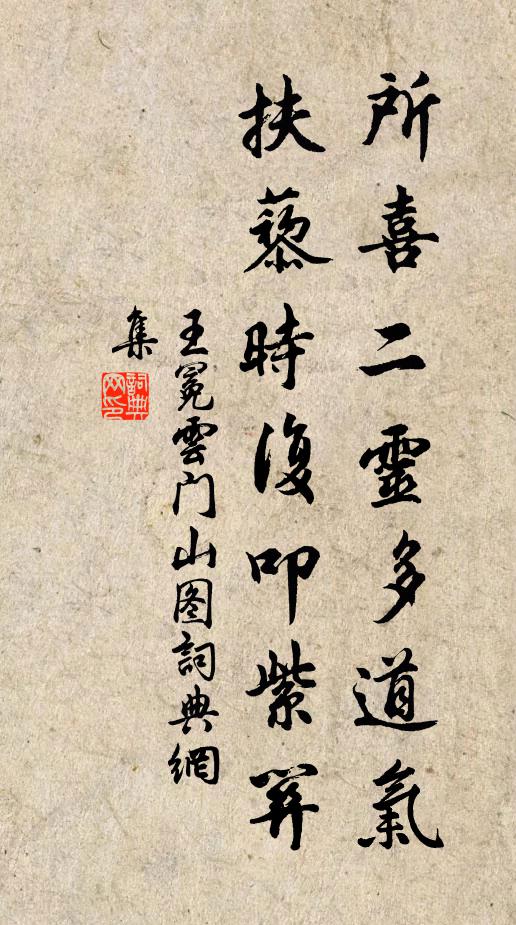 所喜二靈多道氣
扶藜時復叩紫
王冕雲门山图詞典網
集
詞典
网印